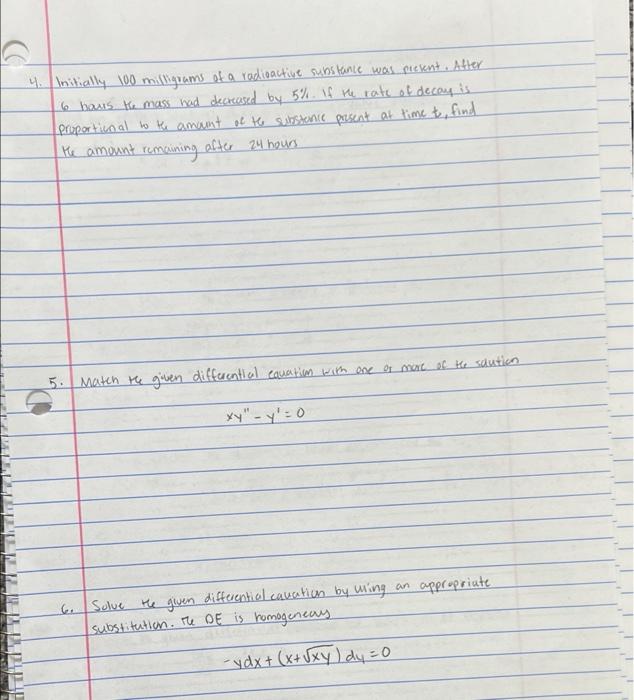 4. Initially 100 milligrams of a radioactive substance was present. After
6 hours the mass had decreased by 5%. If the rate of decay is
proportional to the amount of the substance present at time t, find
the amount remaining after 24 hours
5. Match the given differential equation with one or more of the solution
xy'' - y' = 0
6. Solve the given differential equation by using an appropriate
substitution. The DE is homogeneous
-ydx + (x+√xy) dy = 0